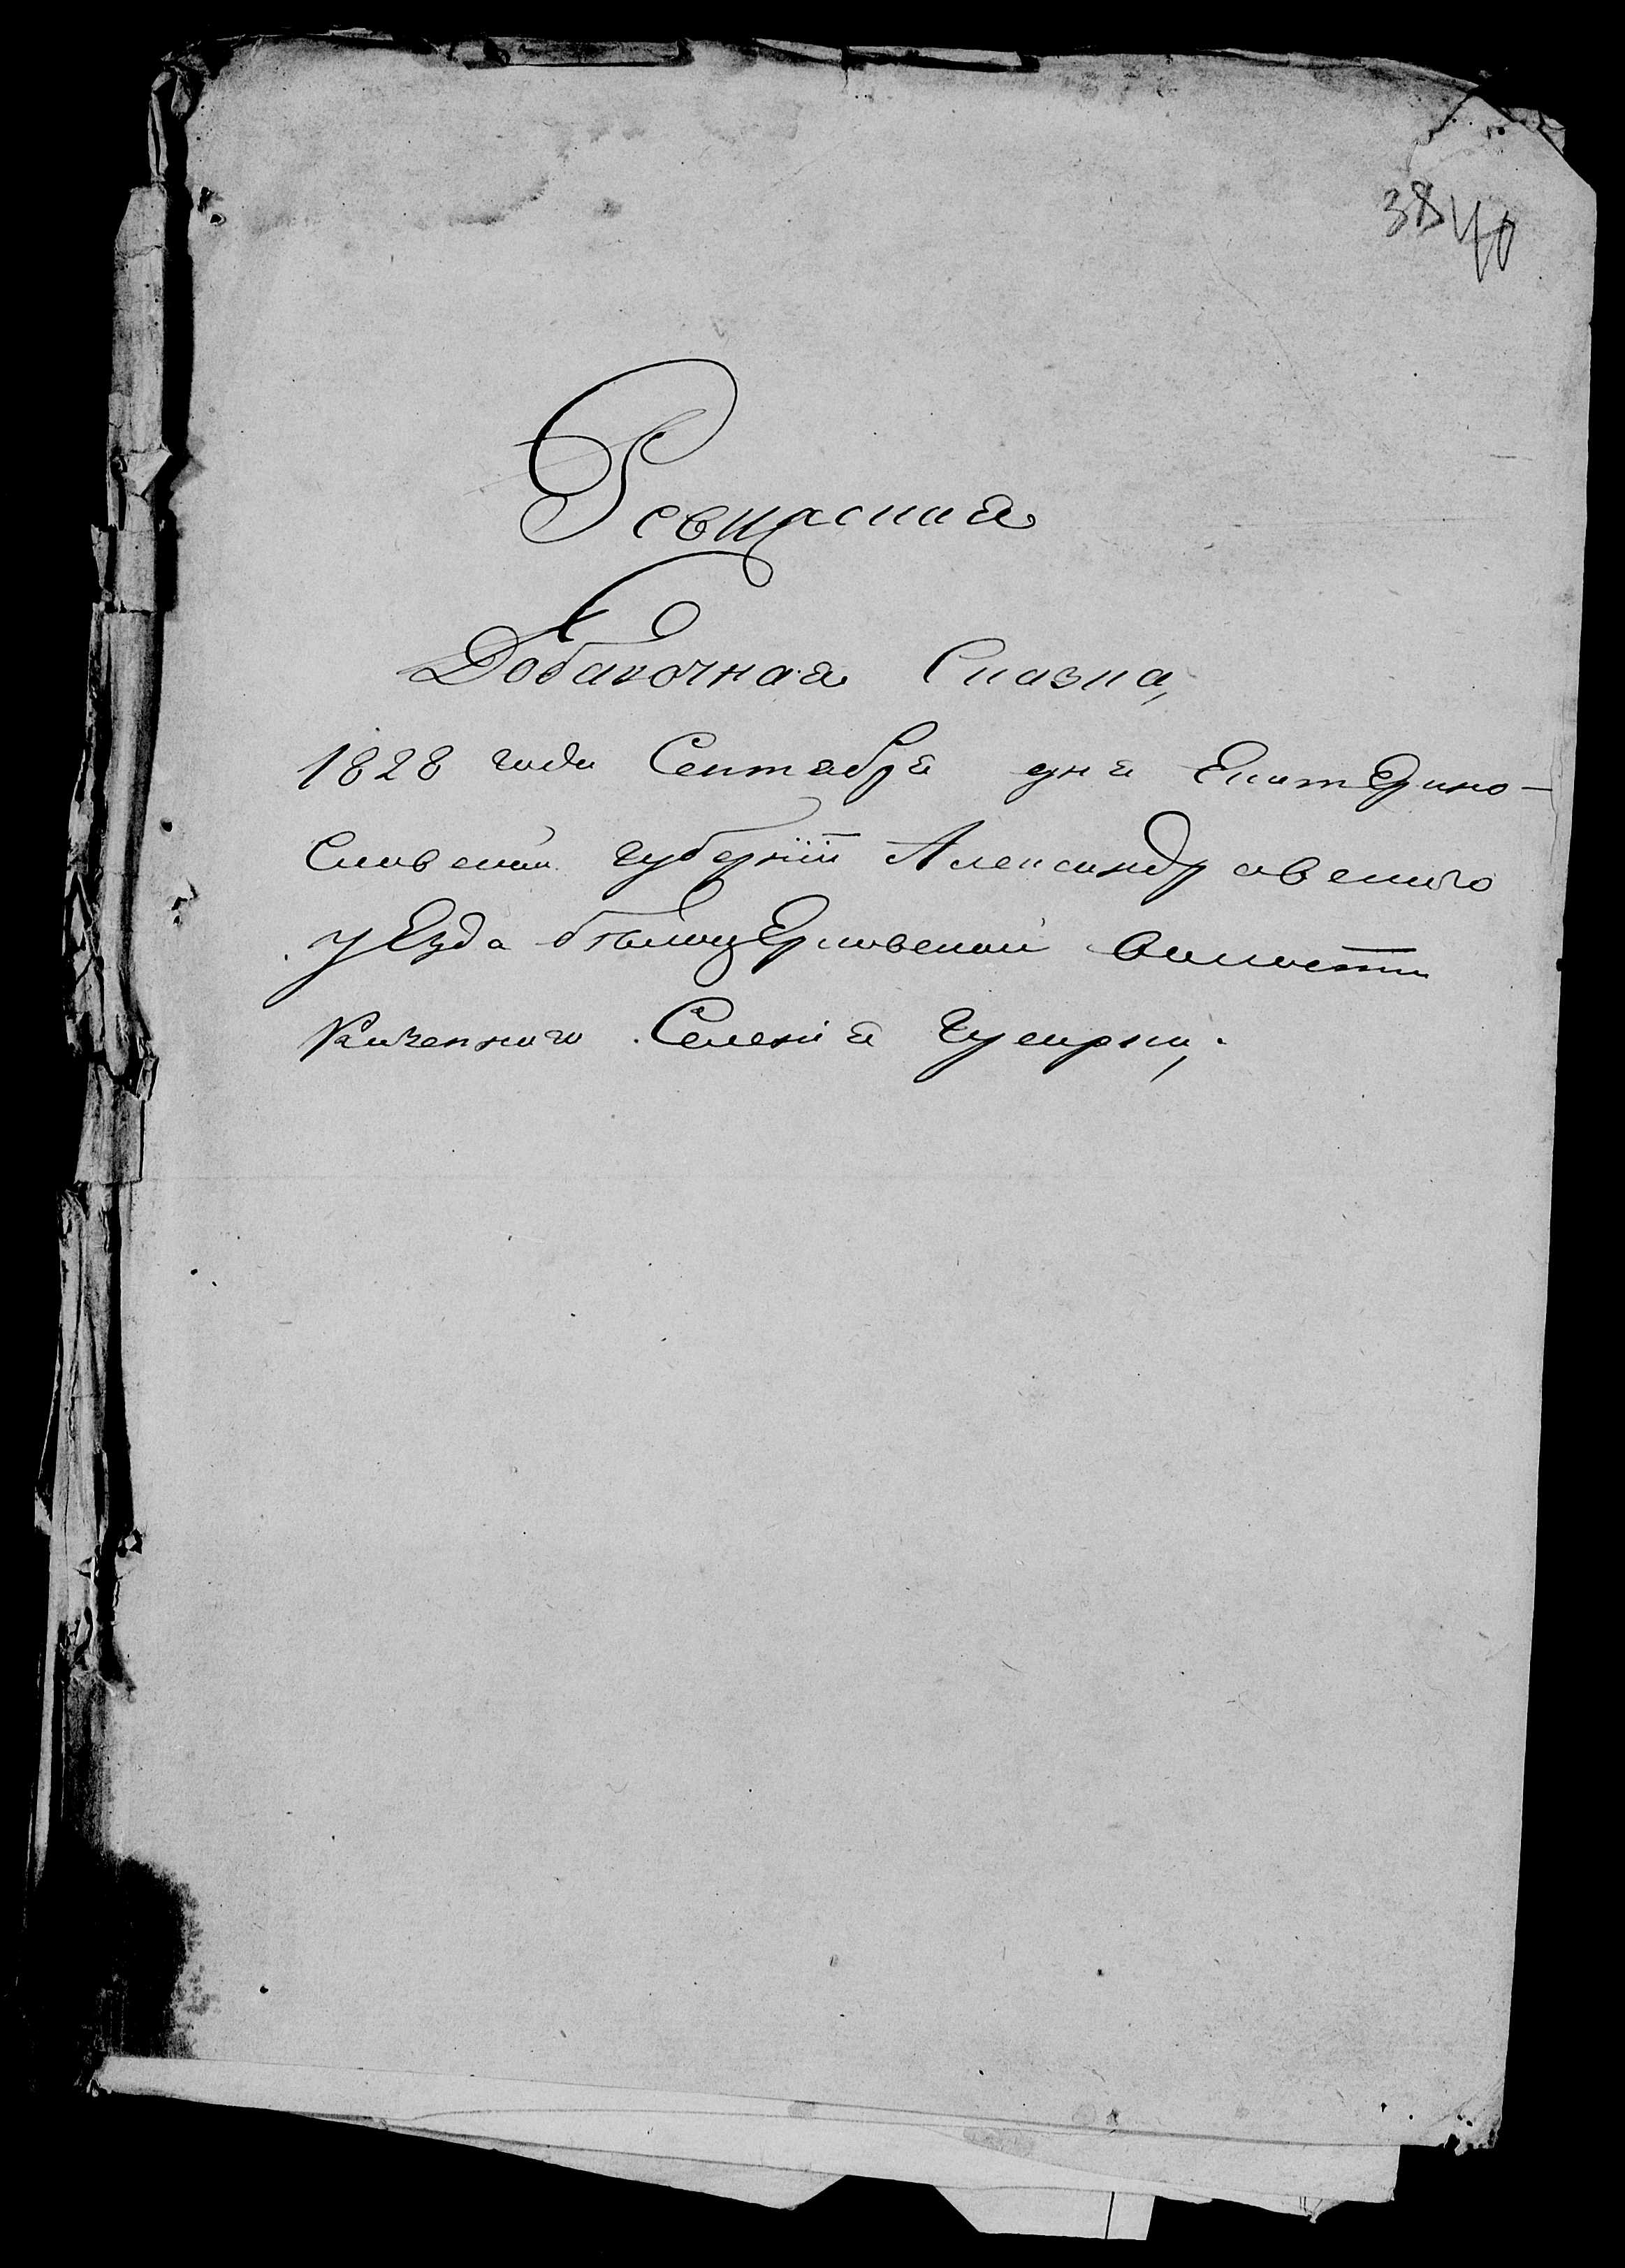 38 40
Ревизская
Добавочная Сказка,
1828 года Сентября дня Екатерино-
Славской губерніи Александровскаго
уезда бѣлоцерковской волости
Казенного Селенія Гусарки;